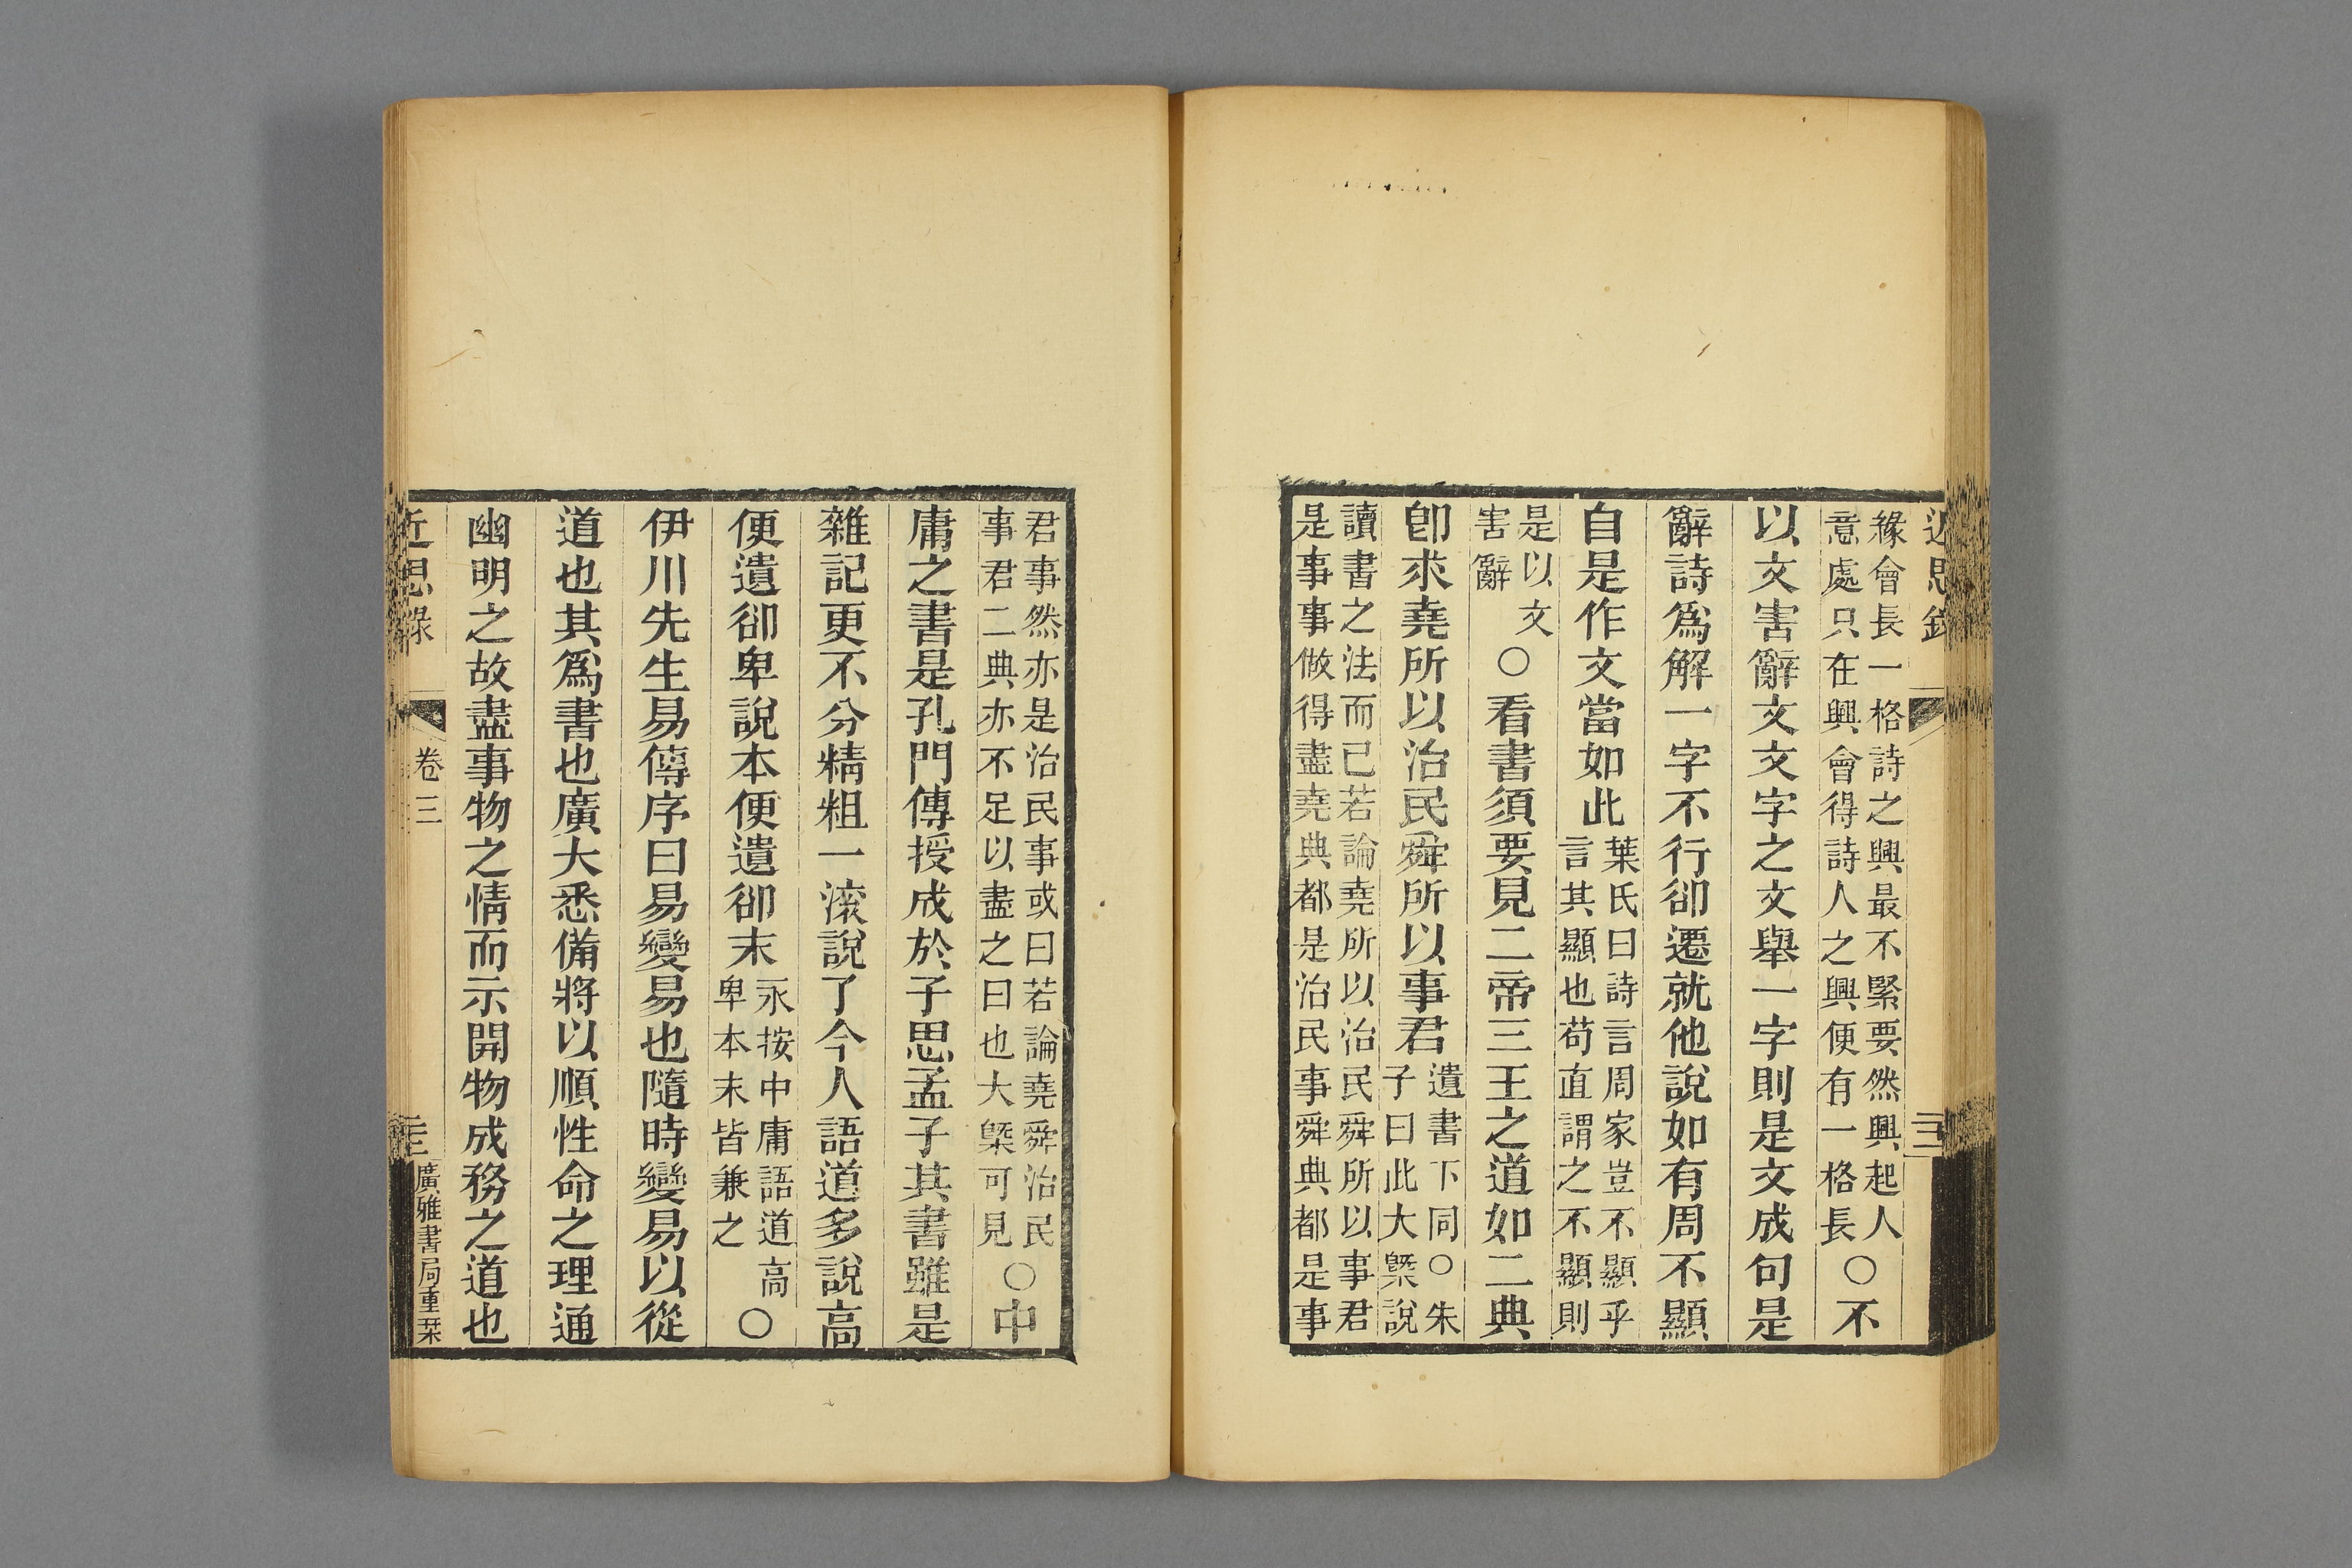 近思錄
緣會長一格詩之興最不緊要然興起人
意處只在興會得詩人之興便有一格長
○不
以文害辭文文字之文舉一字則是文成句是
辭詩爲解一字不行卻遷就他說如有周不顯
自是作文當如此
葉氏曰詩言周家豈不顯乎
言其顯也苟直謂之不顯則
是以文
害辭
○看書須要見二帝三王之道如二典
卽求堯所以治民舜所以事君
遺書下同○朱
子曰此大槩說
讀書之法而已若論堯所以治民舜所以事君
是事事做得盡堯典都是治民事舜典都是事
君事然亦是治民事或曰若論堯舜治民
事君二典亦不足以盡之曰也大槩可見
○中
庸之書是孔門傳授成於子思孟子其書雖是
雜記更不分精粗一滚說了今人語道多說高
便遺卻卑說本便遺卻末
永按中庸語道高
卑本末皆兼之
○
伊川先生易傳序曰易變易也隨時變易以從
道也其爲書也廣大悉備將以順性命之理通
幽明之故盡事物之情而示開物成務之道也
近思錄
卷三
廣雅書局重栞